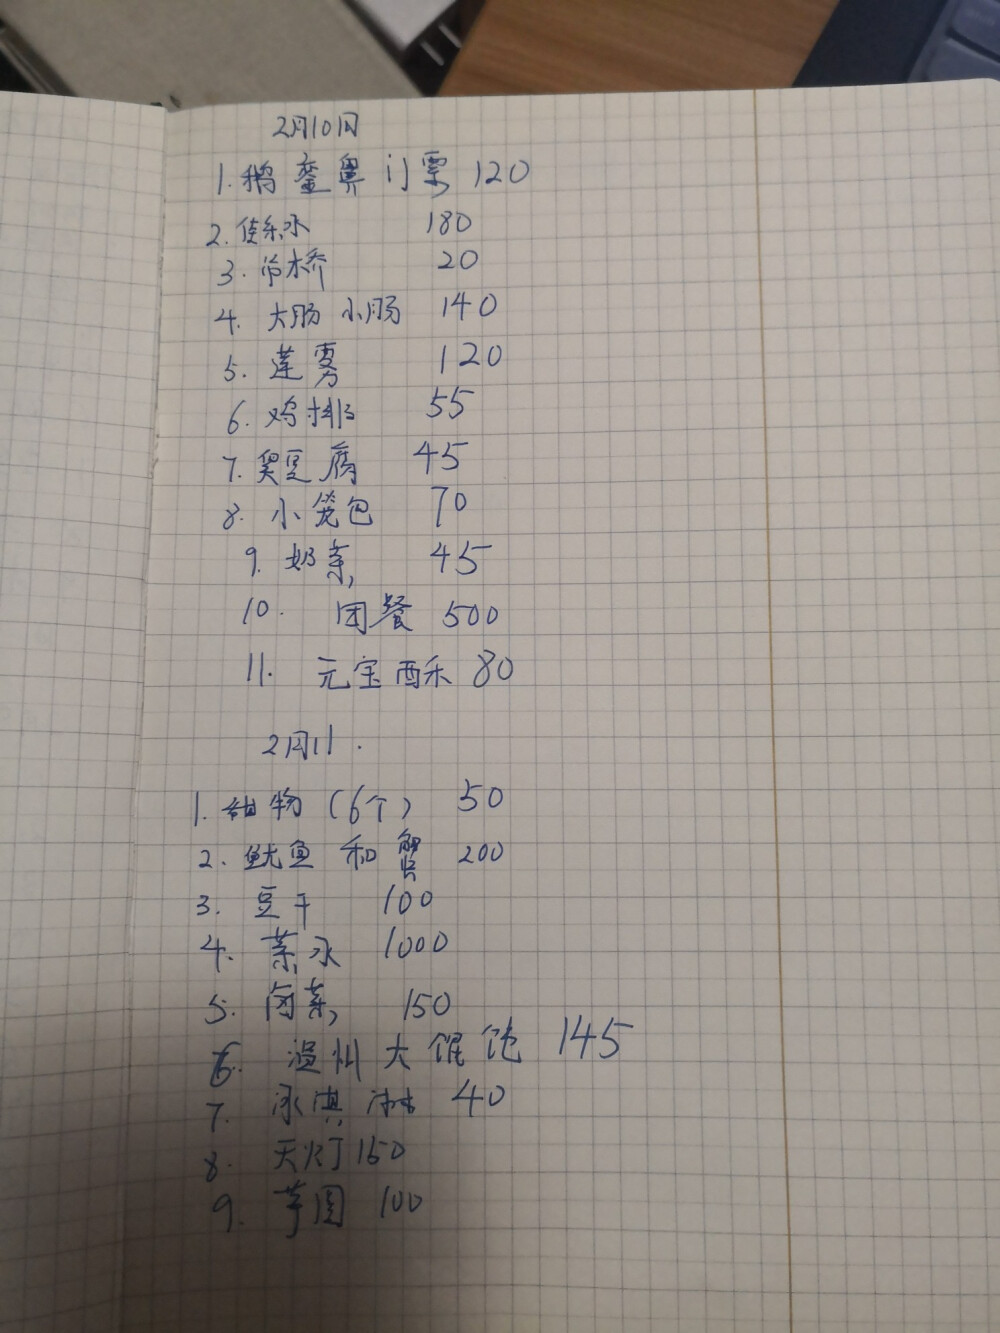 2月10日
1. 鹅銮鼻 门票 120
2. 佳乐水 180
3. 吊桥 20
4. 大肠 小肠 140
5. 莲雾 120
6. 鸡排 55
7. 臭豆腐 45
8. 小笼包 70
9. 奶茶 45
10. 团餐 500
11. 元宝酥 80
2月11.
1. 物 (6个) 50
2. 鱿鱼 和 蟹 200
3. 豆干 100
4. 茶水 1000
5. 卤菜 150
6. 温州大馄饨 145
7. 冰淇淋 40
8. 天灯 150
9. 芋圆 100